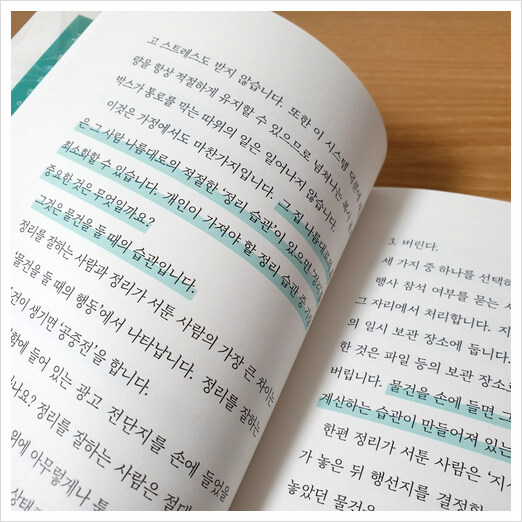 고 스트레스도 받지 않습니다. 또한 이 시스템 덕분에
량을 항상 적절하게 유지할 수 있으므로 넘쳐나는 복사
박스가 통로를 막는 따위의 일은 일어나지 않습니다.
이것은 가정에서도 마찬가지입니다. 그 집 나름대로
은 그 사람 나름대로의 적절한 '정리 습관'이 있으면
최소화할 수 있습니다. 개인이 가져야 할 정리 습관 중
중요한 것은 무엇일까요?
그것은 물건을 둘 때의 습관입니다.
정리를 잘하는 사람과 정리가 서툰 사람의 가장 큰 차이는
'물건을 둘 때의 행동'에서 나타납니다. 정리를 잘하는
건이 생기면 '공중전'을 합니다.
함에 들어 있는 광고 전단지를 손에 들었을
나요? 정리를 잘하는 사람은 절대
위에 아무렇게나 툭
상태
3. 버린다.
세 가지 중 하나를 선택하
행사 참석 여부를 묻는 서
그 자리에서 처리합니다. 지
의 일시 보관 장소에 둡니다.
한 것은 파일 등의 보관 장소
버립니다. 물건을 손에 들면 그
계산하는 습관이 만들어져 있는
한편 정리가 서툰 사람은 '지
가 놓은 뒤 행선지를 결정할
놓았던 물건은